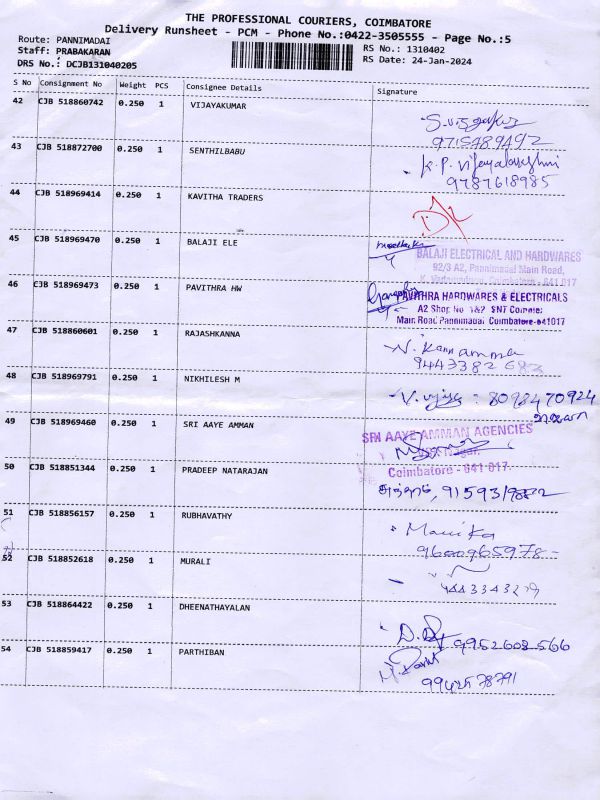 THE PROFESSIONAL COURIERS, COIMBATORE
Delivery Runsheet - PCM - Phone No.:0422-3505555 - Page No.:5
Route: PANNIMADAI
RS No.: 1310402
Staff: PRABAKARAN
RS Date: 24-Jan-2024
DRS No.: DCJB131040205
S No Consignment No Weight PCS Consignee Details Signature
42 CJB 518860742 0.250 1 VIJAYAKUMAR
9715789492
43 CJB 518872700 0.250 1 SENTHILBABU
K.P. Vijayalakshmi
9787618985
44 CJB 518969414 0.250 1 KAVITHA TRADERS
45 CJB 518969470 0.250 1 BALAJI ELE
BALAJI ELECTRICAL AND HARDWARES
92/3 A2, Pannimadai Main Road,
46 CJB 518969473 0.250 1 PAVITHRA HW
PAVITHRA HARDWARES & ELECTRICALS
A2 Shop No 1&2 SNT Complex
Main Road Pannimadai Coimbatore-641017
47 CJB 518860601 0.250 1 RAJASHKANNA
N. Kannamma
9443382682
48 CJB 518969791 0.250 1 NIKHILESH M
49 CJB 518969460 0.250 1 SRI AAYE AMMAN
SRI AAYE AMMAN AGENCIES
Coimbatore - 641 017.
50 CJB 518851344 0.250 1 PRADEEP NATARAJAN
51 CJB 518856157 0.250 1 RUBHAVATHY
9600965978
52 CJB 518852618 0.250 1 MURALI
53 CJB 518864422 0.250 1 DHEENATHAYALAN
9952608566
54 CJB 518859417 0.250 1 PARTHIBAN